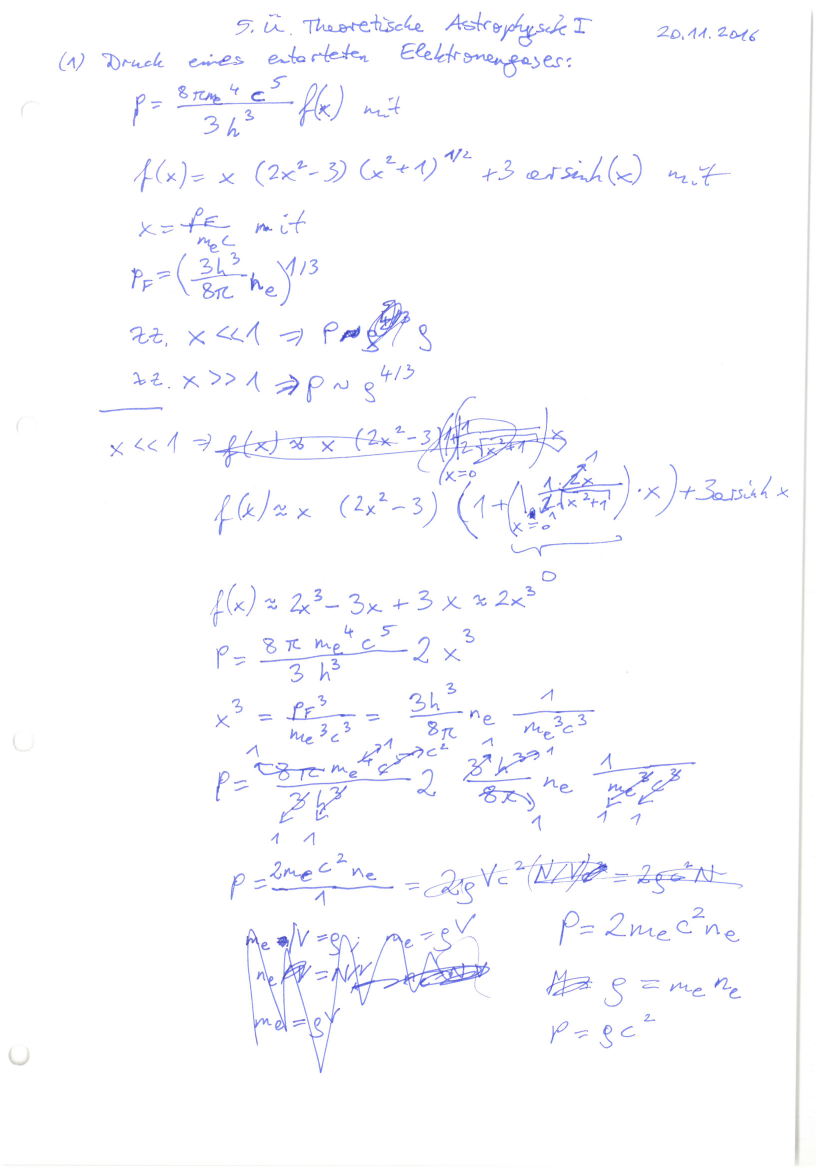 5. Ü. Theoretische Astrophysik I 20.11.2016
(1) Druck eines entarteten Elektronengases:
P = 8πm_e^4 c^5 / 3h^3 f(x) mit
f(x) = x (2x²-3) (x²+1)^1/2 + 3 arsinh(x) mit
x = p_F / m_e c mit
p_F = (3h³/8π n_e)^1/3
zz. x << 1 ⇒ P ~ ρ
zz. x >> 1 ⇒ P ~ ρ^4/3
x << 1 ⇒ f(x) ≈ x (2x²-3)
f(x) ≈ x (2x²-3) (1+(|_x=0 1·2x / 2√x²+1)·x) + 3 arsinh x
0
f(x) ≈ 2x³ - 3x + 3x ≈ 2x³
P = 8π m_e^4 c^5 / 3h³ 2 x³
x³ = p_F³ / m_e³c³ = 3h³/8π n_e 1/m_e³c³
P = 8π m_e^4 c^5 / 3h³ 2 3h³/8π n_e 1/m_e³c³
P = 2m_e c² n_e / 1 = 2ρVc² (N/V) = 2ρc²N
m_e N = ρV; m_e = ρV P = 2m_e c² n_e
n_e V = N/V ρ = m_e n_e
m_e = ρV P = ρc²